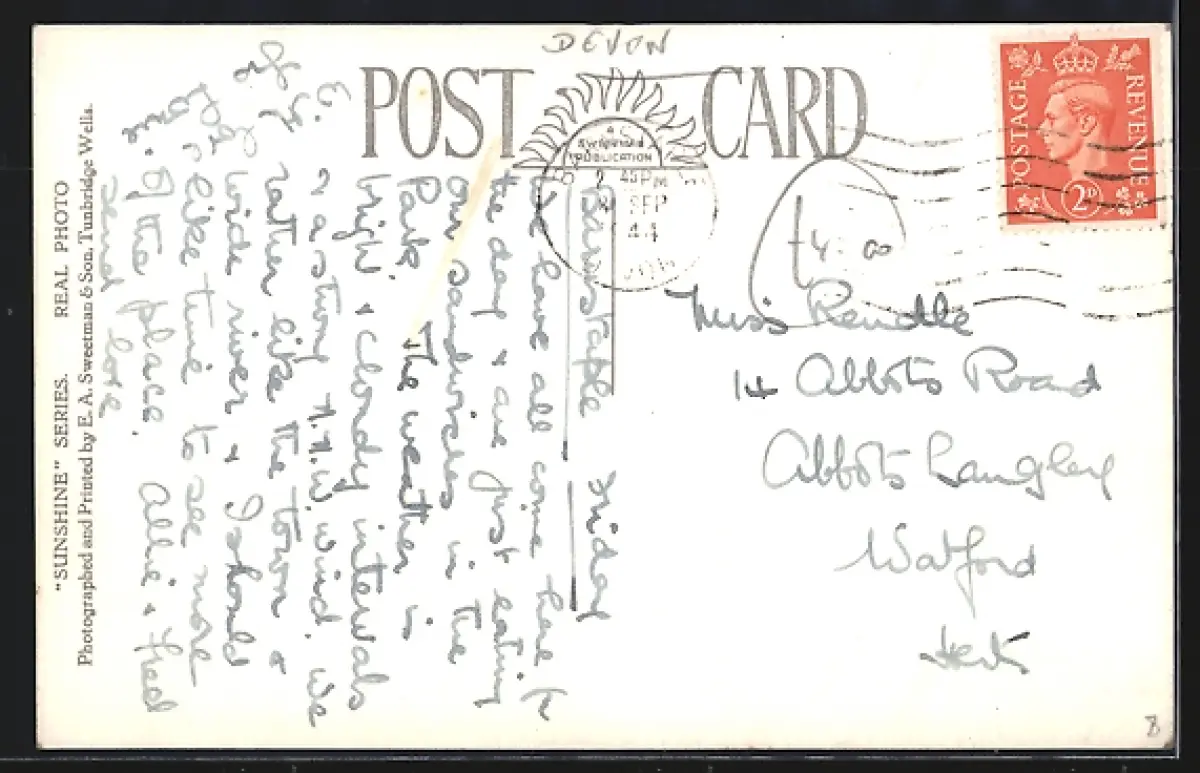 DEVON
POST CARD
A
Sweetman
PUBLICATION
45 PM
SEP
44
POSTAGE
REVENUE
2D
£4.00
Miss Rendle
14 Abbots Road
Abbots Langley
Watford
Herts
Barnstaple Friday
We have all come here for
the day & are just eating
our sandwiches in the
Park. The weather is
bright & cloudy intervals
& a strong N.W. wind. We
rather like the town &
wide river & I should
like time to see more
of the place. Allie & Fred
send love
"SUNSHINE" SERIES. REAL PHOTO
Photographed and Printed by E. A. Sweetman & Son, Tunbridge Wells.
B